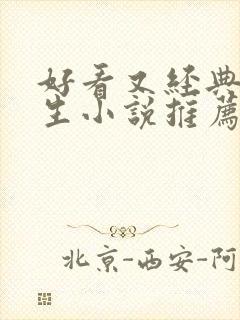 好看又经典
生小说推荐
北京-西安-阿